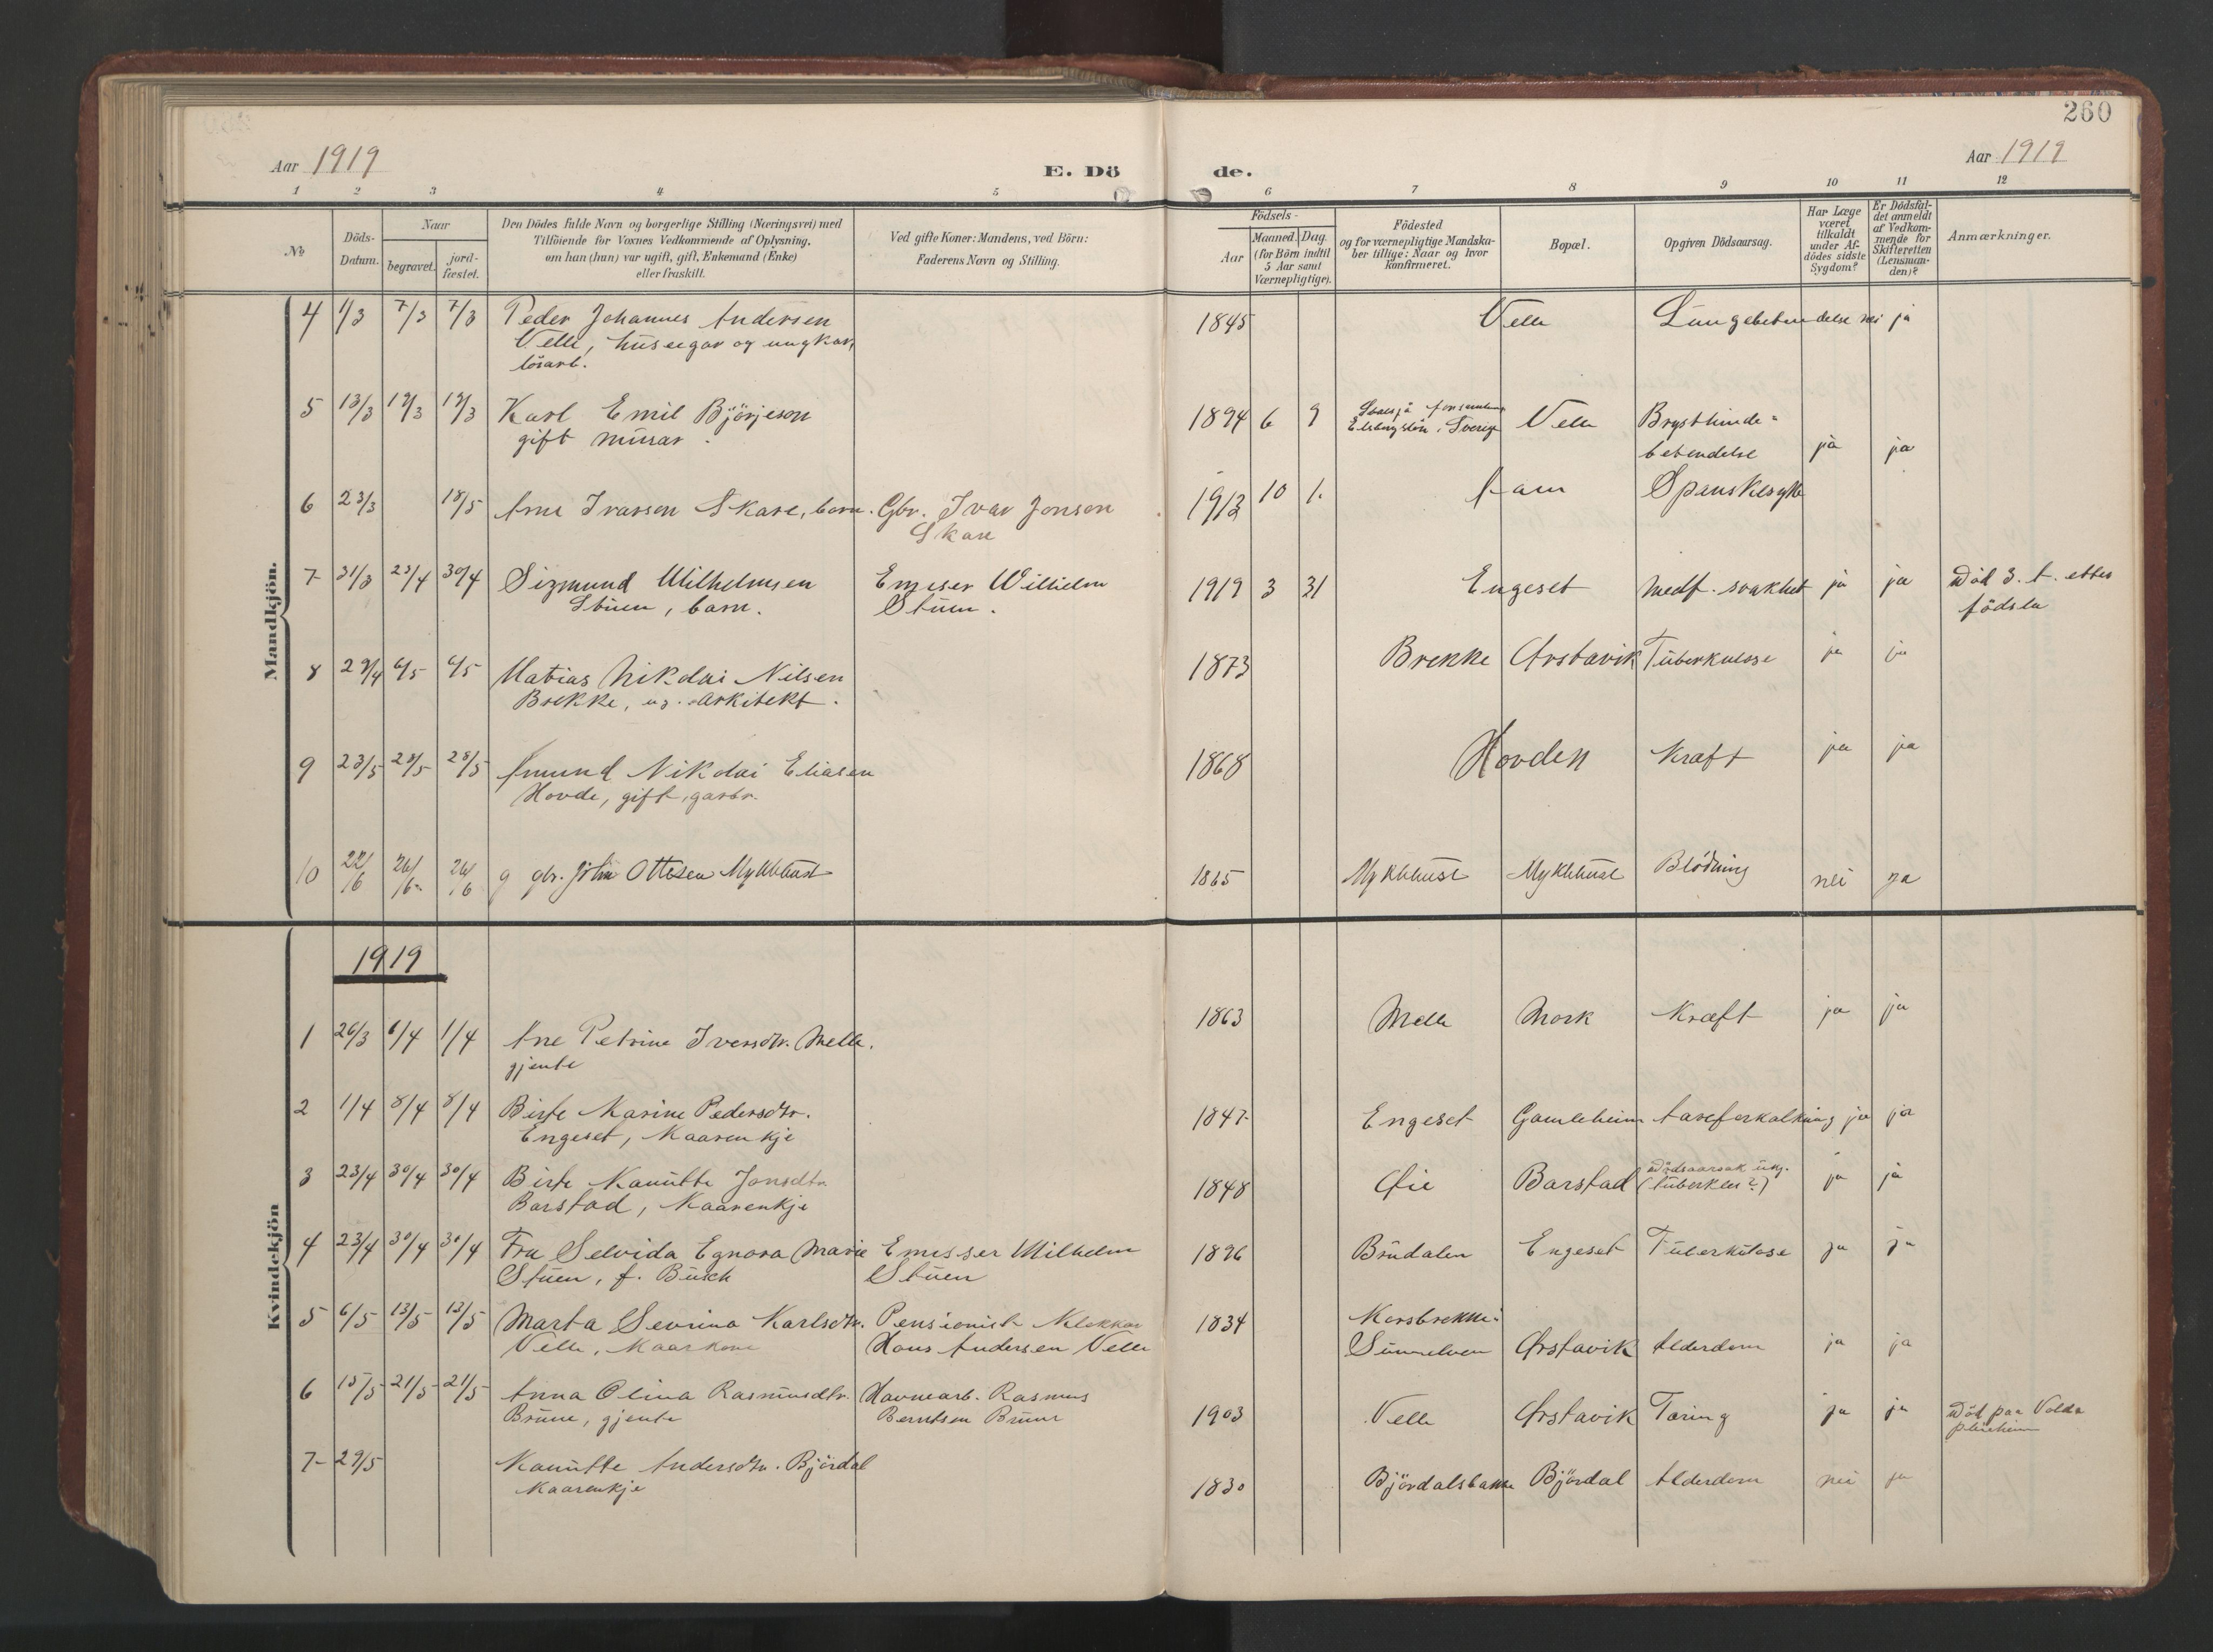 260
Aar 1919
E. Dö de.
Aar 1919
1 2 3 4 5 6 7 8 9 10 11 12
No
Döds-Datum.
Naar
begravet.
jord-fæstet.
Den Dödes fulde Navn og borgerlige Stilling (Næringsvei) med
Tilföiende for Voxnes Vedkommende af Oplysning,
om han (hun) var ugift, gift, Enkemand (Enke)
eller fraskilt.
Ved gifte Koner: Mandens, ved Börn:
Faderens Navn og Stilling.
Födsels-
Aar
Maaned. Dag.
(for Börn indtil
5 Aar samt
Værnepligtige).
Födested
og for værnepligtige Mandska-
ber tillige: Naar og hvor
konfirmeret.
Bopæl.
Opgiven Dödsaarsag.
Har Læge
været
tilkaldt
under Af-
dödes sidste
Sygdom?
Er Dödsfal-
det anmeldt
af Vedkom-
mende for
Skifteretten
(Lensman-
den)?
Anmærkninger.
Mandkjön.
4 1/3 7/3 7/3 Peder Johannes Andersen 1845 Velle Lungebetendelse nei ja
Velle, huseegar og ungkar,
lösarb.
5 13/3 19/3 19/3 Karl Emil Björjeson 1894 6 9 Sverige Velle Brysthinde-
gift murar. betendelse ja ja
6 23/3 18/5 Arne Ivarsen Skare, barn. Gbr. Ivar Jonson 1912 10 1. Aam Spanskesyke
Skare
7 31/3 23/4 30/4 Sigmund Wilhelmsen Emisser Wilhelm 1919 3 31 Engeset Medf. svakhet ja ja Död 3. t. etter
Stuen, barn. Stuen. födsla
8 29/4 6/5 6/5 Matias Nikolai Nilsen 1873 Brekke Örstavik Tuberkulose ja ja
Brekke, ug. Arkitekt.
9 23/5 28/5 28/5 Amund Nikolai Eliasen 1868 Hovden Kræft ja ja
Hovde, gift, garbr.
10 22/6 26/6 26/6 g gbr. John Ottesen Myklebust 1865 Myklebust Myklebust Blödning nei ja
Kvindekjön
1919
1 26/3 1/4 1/4 Ane Petrine Iversdtr. Melle. 1863 Melle Mork Kræft ja ja
gjente
2 1/4 8/4 8/4 Birte Karine Pedersdtr. 1847 Engeset Gamleheim Aareforkalkning ja ja
Engeset, Kaarenkje
3 23/4 30/4 30/4 Birte Knutte Jonsdtr. 1848 Öie Barstad Dödsaarsak ukj. ja ja
Barstad, Kaarenkje (tuberkler?)
4 23/4 30/4 30/4 Fru Selvida Egnora Marie Emisser Wilhelm 1896 Brudalen Engeset Tuberkulose ja ja
Stuen, f. Busch Stuen
5 6/5 13/5 13/5 Marta Sevrina Karlsdtr. Pensionist Klokkar 1834 Korsbrekke i
Velle, Kaarkone Hans Andersen Velle Sunnelven Örstavik Alderdom ja ja
6 15/5 21/5 21/5 Anna Olina Rasmusdtr. Havnearb. Rasmus 1903 Velle Örstavik Tæring ja ja Död paa Volda
Brune, gjente Berntsen Brune pleieheim
7 29/5 Knutte Andersdtr. Björdal 1830 Björdalsbakke Björdal Alderdom nei ja
Kaarenkje